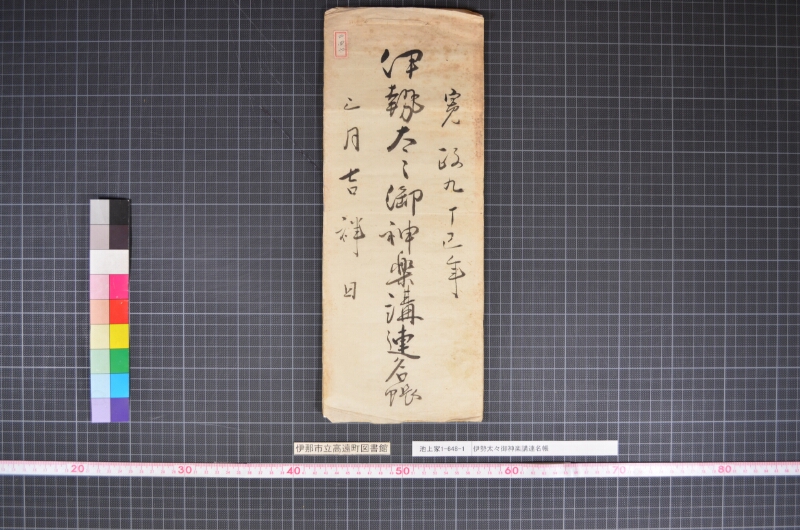 寛政九丁巳年
伊勢太々御神楽講連名帳
三月吉祥日
伊那市立高遠町図書館
池上家1-648-1 伊勢太々御神楽講連名帳
20 30 40 50 60 70 80